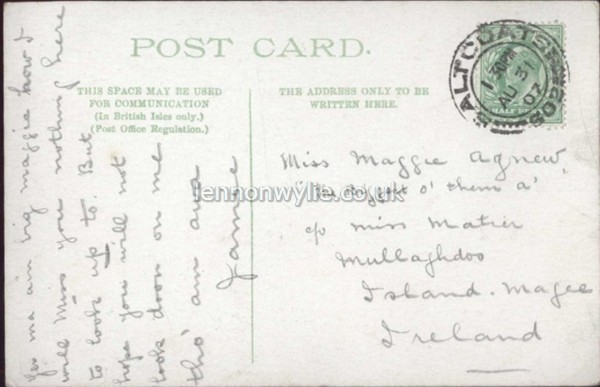 POST CARD.
THIS SPACE MAY BE USED
FOR COMMUNICATION
(In British Isles only.)
(Post Office Regulation.)
THE ADDRESS ONLY TO BE
WRITTEN HERE.
SALTCOATS
AU 31
07
HALF
lennonwylie.co.uk
ma ain big maggie how I
will Miss you nothing here
to look up to. But
hope you will not
look down on me
tho' am awa
Jamie
Miss Maggie Agnew
"The Biggest o' them a'"
c/o Miss
Mullaghdoo
Island-Magee
Ireland